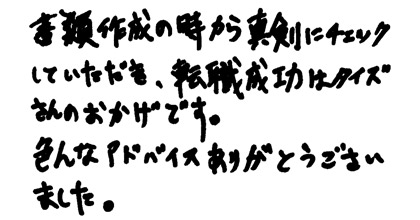 書類作成の時から真剣にチェック
していただき、転職成功はタイズ
さんのおかげです。
色んなアドバイスありがとうござい
ました。